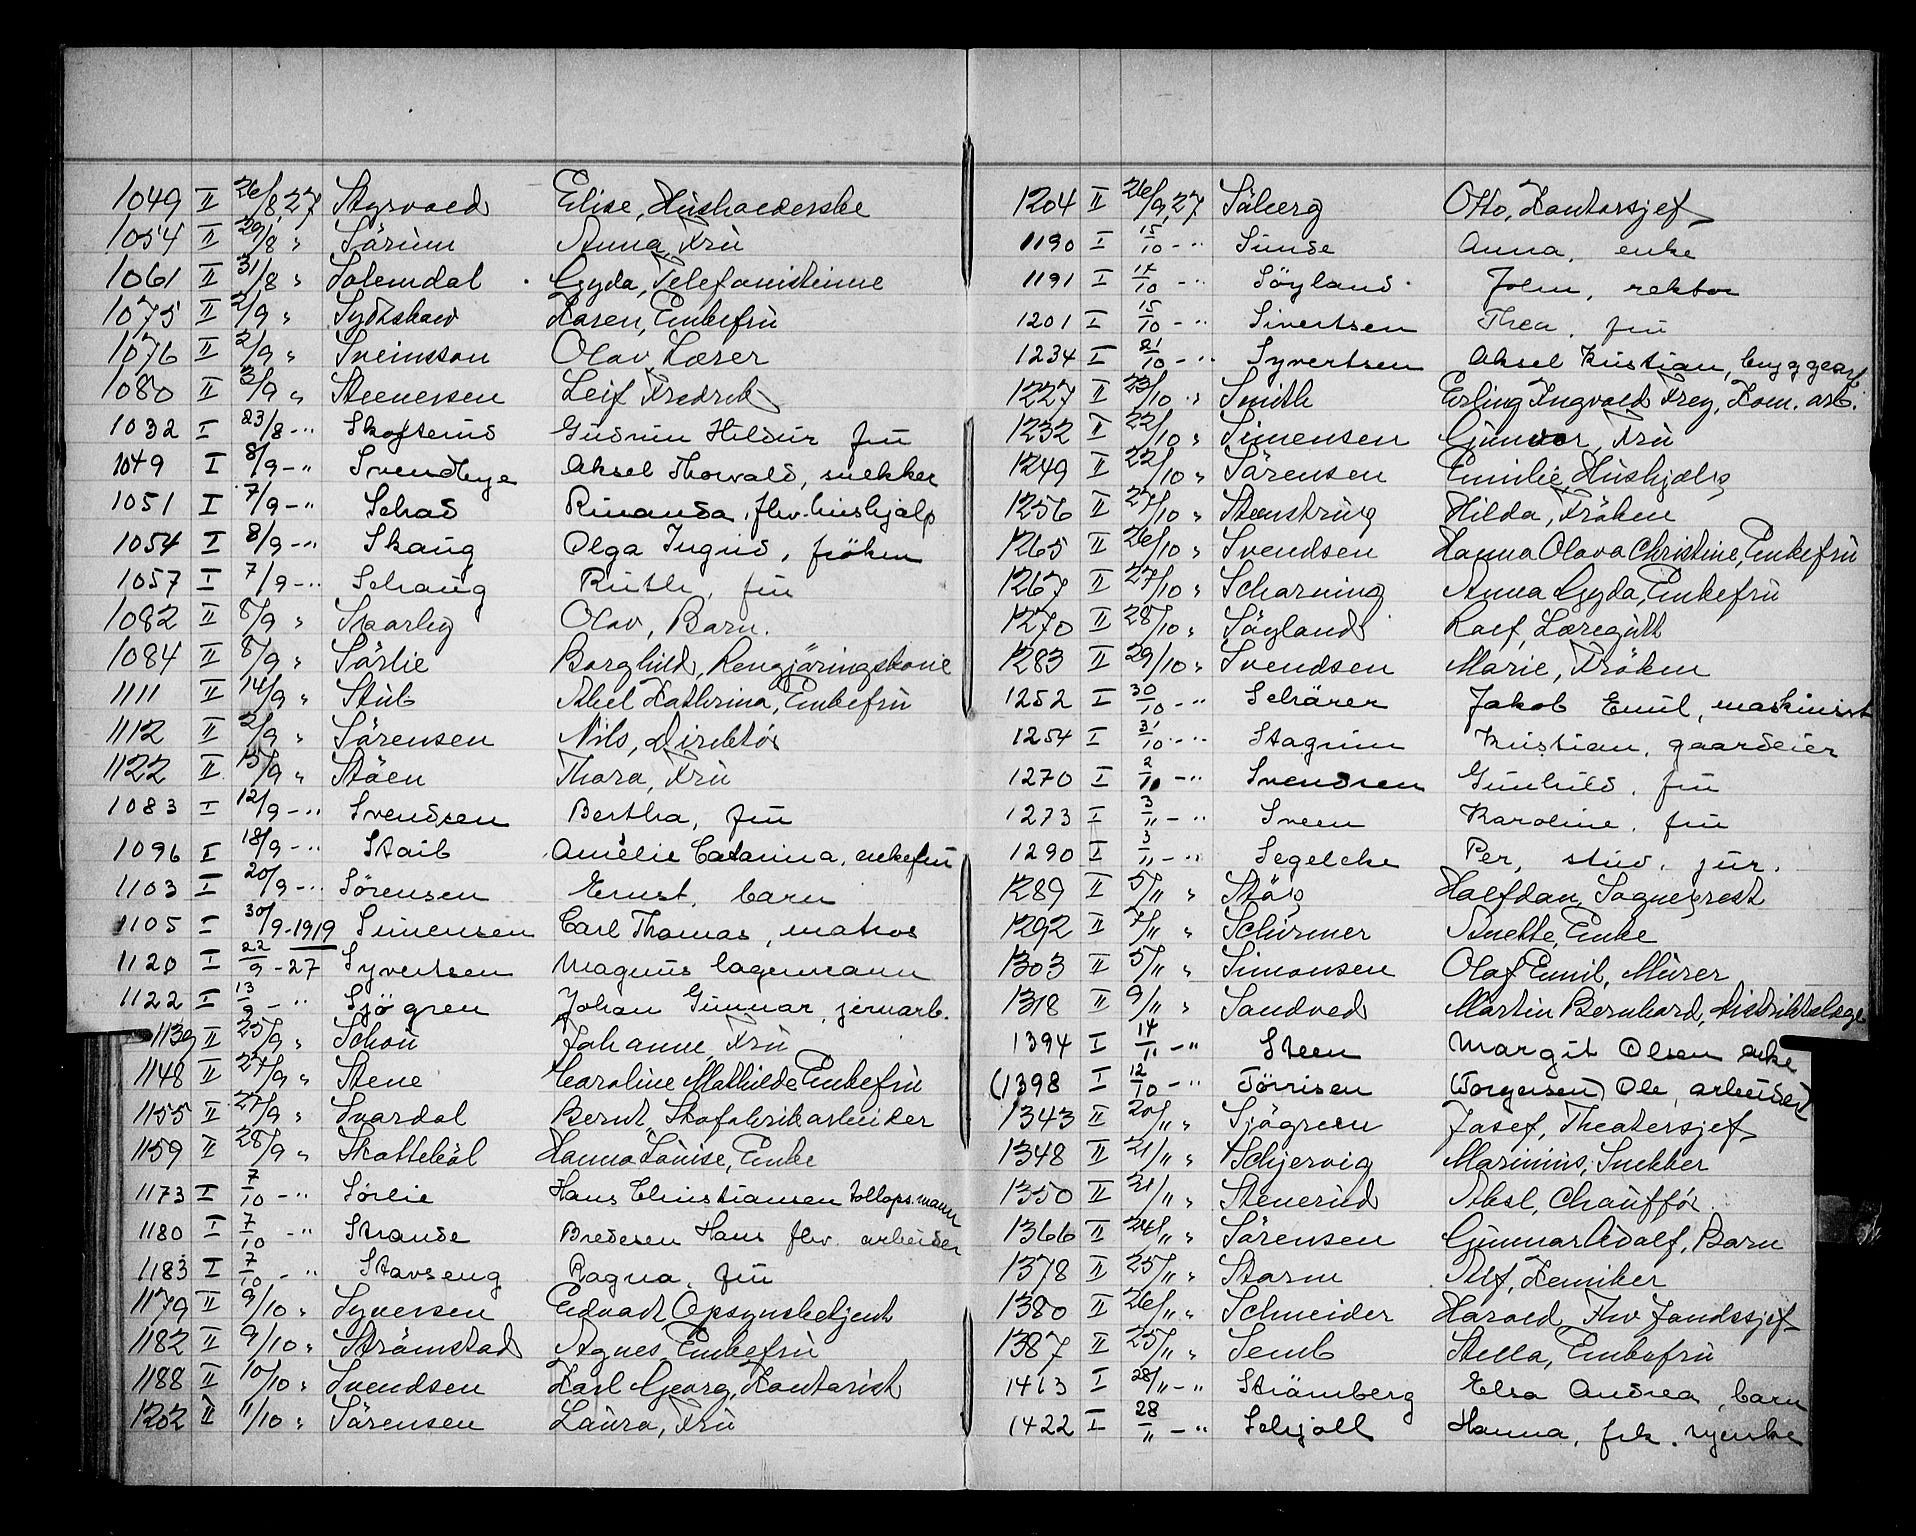 1049 II 26/8,27 Styrvold Elise, Husholderske
1054 II 29/8 " Sörum Anna, Fru
1061 II 31/8 " Solemdal Gyda, Telefonistinne
1075 II 2/9 " Sydtskow Karen, Enkefru
1076 II 2/9 " Sveinsson Olav, Lærer
1080 II 3/9 " Steenersen Leif Fredrik
1032 I 23/8 - " Skofterud Gudrun Hildur fru
1049 I 8/9 - " Svendbye Aksel Thorvald, snekker
1051 I 7/9 - " Schad Rinanda, fhv. hushjælp
1054 I 8/9 - " Skaug Olga Ingrid, fröken
1057 I 7/9 - " Schaug Ruth, fru
1082 II 8/9 " Skarby Olav, Barn.
1084 II 8/9 " Sörlie Borghild, Rengjöringskone
1111 II 14/9 " Stub Abel Kathrina, Enkefru
1112 II 2/9 " Sörensen Nils, Direktör
1122 II 15/9 " Stöen Thora, Fru
1083 I 12/9 - " Svendsen Bertha, fru
1096 I 18/9 - " Staib Amélie Catarina, enkefru
1103 I 20/9 - " Sørensen Ernst, barn
1105 I 30/9-1919 Simensen Carl Thomas, matros
1120 I 22/9 - 27 Syvertsen Magnus lagermann
1122 I 13/9 - " Sjögren Johan Gunnar, jernarb.
1139 II 25/9 " Schou Johanne, Fru
1148 II 27/9 " Stene Caroline Mathilde Enkefru
1155 II 27/9 " Svardal Bernt, Skofabrikarbeider
1159 II 28/9 " Skatteböl Hanna Louise, Enke
1173 I 7/10 - " Sørlie Hans Christiansen tollops.mann
1180 I 7/10 - " Strande Bredesen Hans fhv. arbeider
1183 I 7/10 - " Stavseng Ragna, fru
1179 II 9/10 " Syversen Edvart Opsynsbetjent
1182 II 9/10 " Strömstad Agnes, Enkefru
1188 II 10/10 " Svendsen Karl Georg, Kontorist
1202 II 11/10 " Sörensen Laura, Fru
1204 II 26/9,27 Söberg Otto, Kontorsjef
1190 I 15/10 - " Sunde Anna, enke
1191 I 14/10 - " Söyland John, rektor
1201 I 15/10 - " Sivertsen Thea, fru
1234 I 21/10 - " Syvertsen Aksel Kristian, byggearb.
1227 II 23/10 " Smith Erling Ingvald Frey, Kom. arb.
1232 II 22/10 " Simensen Gunvor, Fru
1249 II 22/10 " Sörensen Emilie, Hushjælp
1256 II 27/10 " Stenstrup Hilda, Fröken
1265 II 26/10 " Svendsen Hanna Olava Christine, Enkefru
1267 II 27/10 " Scharning Anna Gyda, Enkefru
1270 II 28/10 " Söyland Rolf, Læregutt
1283 II 29/10 " Svendsen Marie, Fröken
1252 I 30/10 - " Schärer Jakob Emil, maskinist
1254 I 31/10 - " Stagrim Kristian, gaardeier
1270 I 2/11 - " Svendsen Gunhild, fru
1273 I 3/11 - " Sveen Karoline, fru
1290 I 3/11 - " Segelcke Per, stud. jur.
1289 II 5/11 " Stöip Halfdan, Sogneprest
1292 II 7/11 " Schirmer Anette, Enke
1303 II 5/11 " Simonsen Olaf Emil, Murer
1318 II 9/11 " Sandved Martin Bernhard, Distriktslæge
1394 I 14/11 - " Steen Margit Olsen enke
(1398 I 12/10 - " Törrisen (Torgersen) Ole, arbeider)
1343 II 20/11 " Sjögreen Josef, Theatersjef
1348 II 21/11 " Schjervig Marinius, Snekker
1350 II 21/11 " Stenerud Aksl, Chaufför
1366 II 24/11 " Sörensen Gunnar Adolf, Barn
1378 II 25/11 " Storm Alf, Kemiker
1380 II 26/11 " Schneider Harald, Fhv Fondssjef
1387 II 25/11 " Semb Stella, Enkefru
1413 I 28/11 - " Strömberg Elsa Andrea, barn
1422 I 28/11 - " Schjoll Hanna, frk. syerske